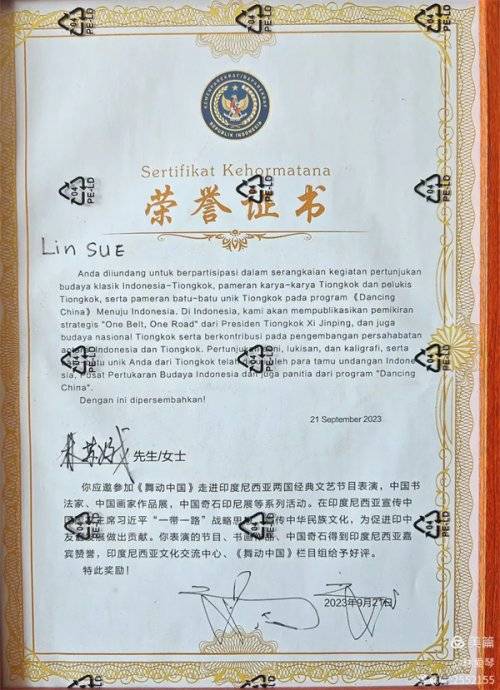 Sertifikat Kehormatana
荣誉证书
Lin SUE
Anda diundang untuk berpartisipasi dalam serangkaian kegiatan pertunjukan
budaya klasik Indonesia-Tiongkok, pameran karya-karya Tiongkok dan pelukis
Tiongkok, serta pameran batu-batu unik Tiongkok pada program 《Dancing
China》 Menuju Indonesia. Di Indonesia, kami akan mempublikasikan pemikiran
strategis "One Belt, One Road" dari Presiden Tiongkok Xi Jinping, dan juga
budaya nasional Tiongkok serta berkontribusi pada pengembangan persahabatan
Indonesia dan Tiongkok. Pertunjukan, lukisan, dan kaligrafi, serta
batu unik Anda dari Tiongkok telah oleh para tamu undangan Indone
sia, Pusat Pertukaran Budaya Indonesia dan juga panitia dari program "Dancing
China".
Dengan ini dipersembahkan!
21 September 2023
先生/女士
你应邀参加《舞动中国》走进印度尼西亚两国经典文艺节目表演，中国书
法家、中国画家作品展，中国奇石印尼展等系列活动。在印度尼西亚宣传中
主席习近平“一带一路”战略思 传中华民族文化，为促进印中
友 展做出贡献。你表演的节目、书画 、中国奇石得到印度尼西亚嘉
宾赞誉，印度尼西亚文化交流中心、《舞动中国》栏目组给予好评。
特此奖励！
2023年9月21日
美篇
04
PE-LD
REPUBLIK INDONESIA